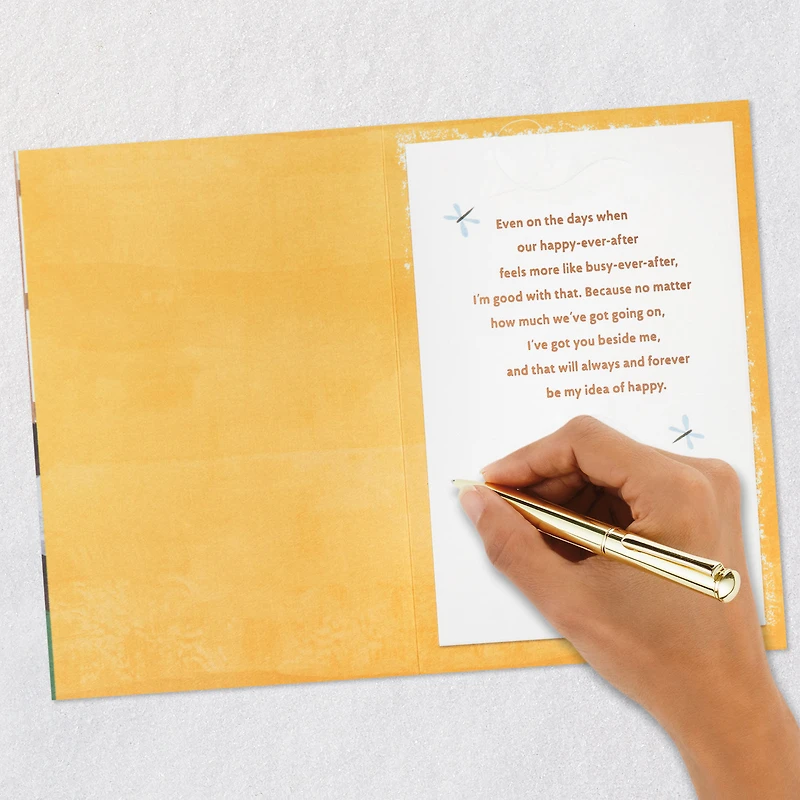 Even on the days when
our happy-ever-after
feels more like busy-ever-after,
I'm good with that. Because no matter
how much we've got going on,
I've got you beside me,
and that will always and forever
be my idea of happy.